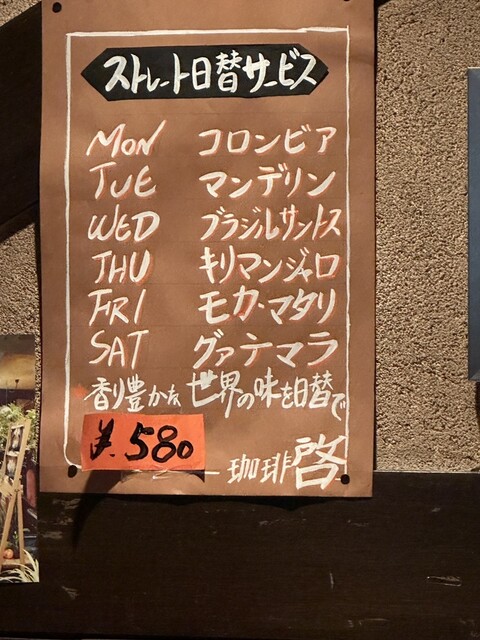 ストレート日替サービス
MON コロンビア
TUE マンデリン
WED ブラジルサントス
THU キリマンジャロ
FRI モカ・マタリ
SAT グァテマラ
香り豊かな世界の味を日替で
¥.580
珈琲啓